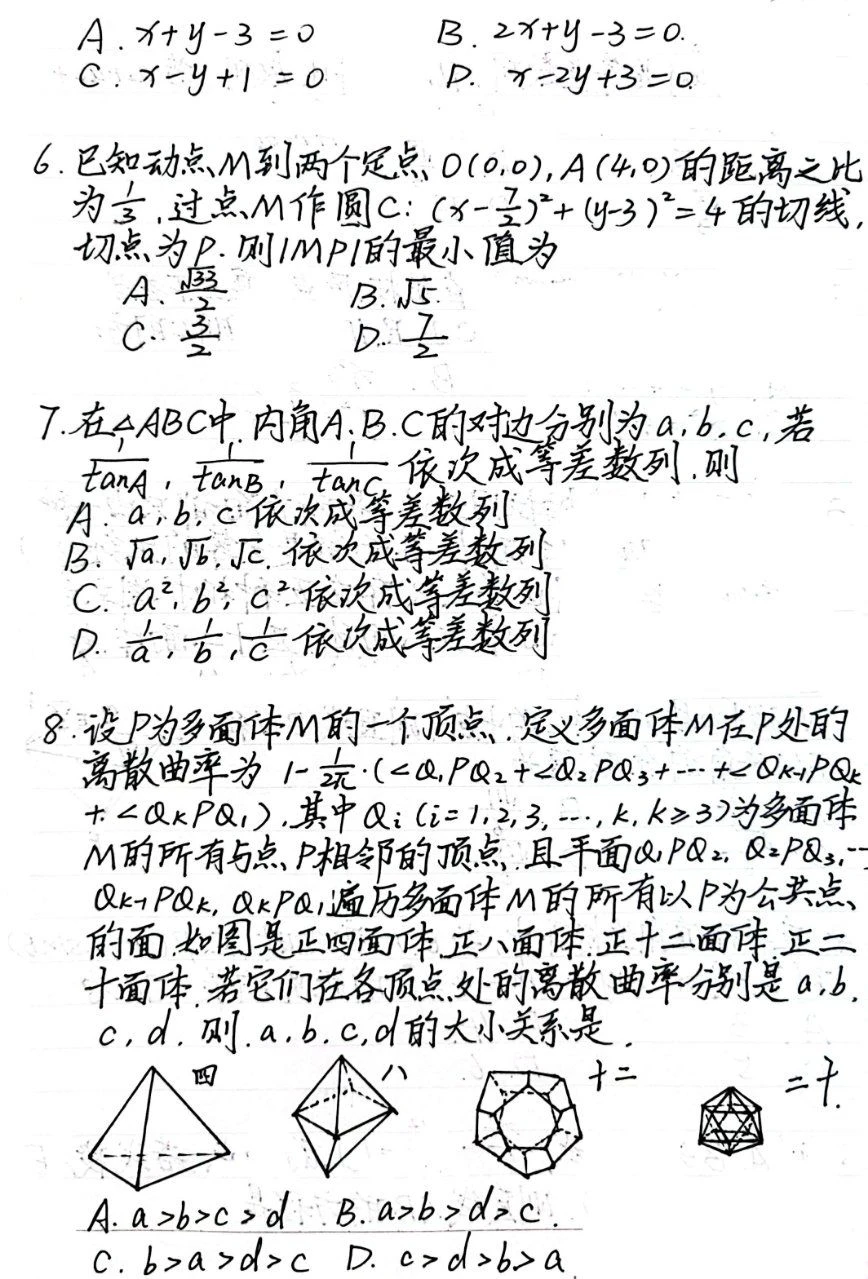 A. x+y-3=0 B. 2x+y-3=0.
C. x-y+1=0 D. x-2y+3=0.
6. 已知动点M到两个定点O(0,0), A(4,0)的距离之比
为1/3, 过点M作圆C: (x-7/2)²+(y-3)²=4的切线,
切点为P. 则|MP|的最小值为
A. √33/2 B. √5.
C. 3/2 D. 7/2
7. 在△ABC中, 内角A.B.C的对边分别为a,b,c, 若
1/tanA, 1/tanB, 1/tanC 依次成等差数列, 则
A. a, b, c 依次成等差数列
B. √a, √b, √c, 依次成等差数列
C. a², b², c² 依次成等差数列
D. 1/a, 1/b, 1/c 依次成等差数列
8. 设P为多面体M的一个顶点, 定义多面体M在P处的
离散曲率为 1-1/2π·(<Q₁PQ₂+<Q₂PQ₃+…+<Qₖ₋₁PQₖ
+<QₖPQ₁), 其中Qᵢ(i=1,2,3,…,k,k≥3)为多面体
M的所有与点P相邻的顶点, 且平面Q₁PQ₂, Q₂PQ₃,…
Qₖ₋₁PQₖ, QₖPQ₁遍历多面体M的所有以P为公共点
的面, 如图是正四面体, 正八面体, 正十二面体, 正二
十面体, 若它们在各顶点处的离散曲率分别是a,b,
c,d, 则, a,b,c,d的大小关系是.
四 八 十二 二十.
A. a>b>c>d B. a>b>d>c.
C. b>a>d>c D. c>d>b>a